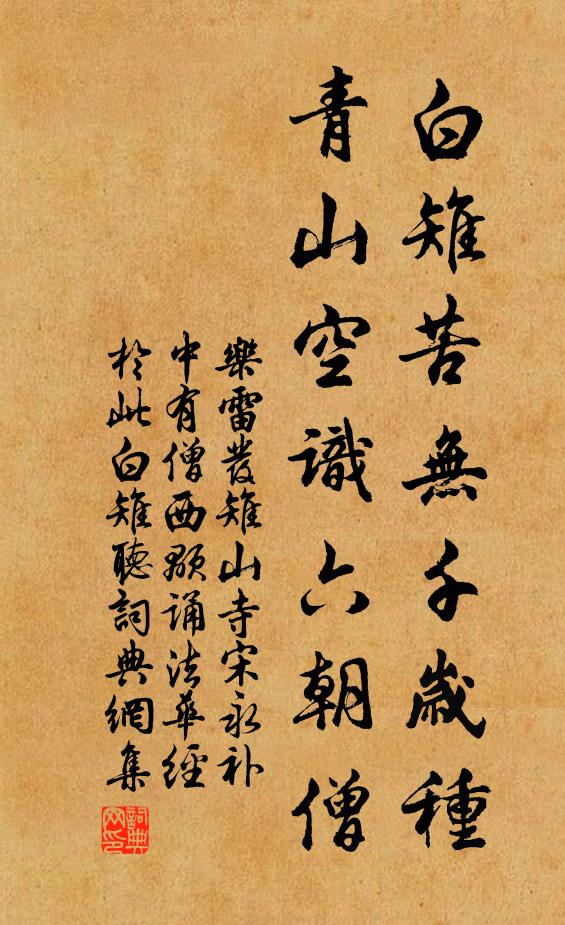 白雉苦無千歲種
青山空識六朝僧
樂雷發雉山寺宋永补
中有僧西顥誦法華經
於此白雉聽詞典網集
詞典
网印